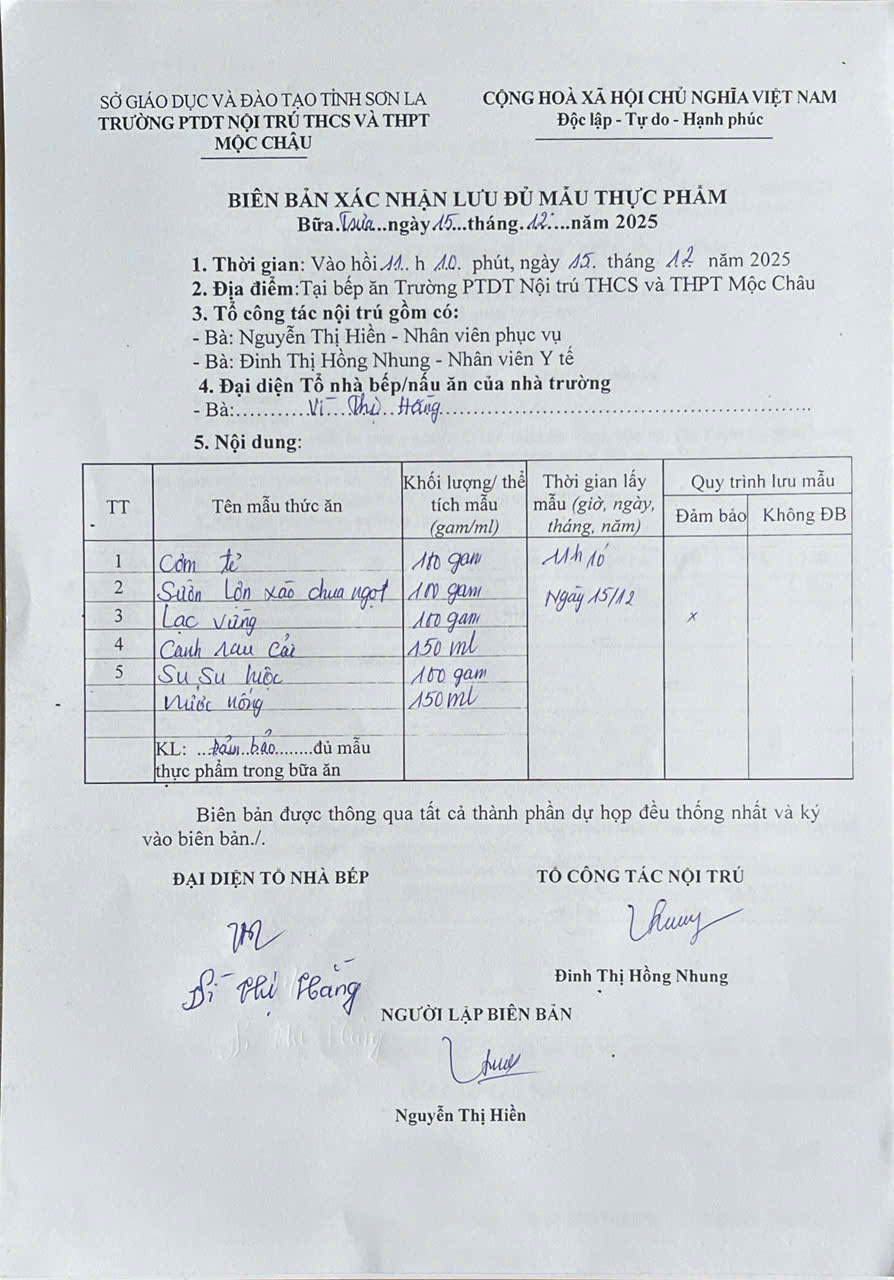 SỞ GIÁO DỤC VÀ ĐÀO TẠO TỈNH SƠN LA
TRƯỜNG PTDT NỘI TRÚ THCS VÀ THPT
MỘC CHÂU
CỘNG HOÀ XÃ HỘI CHỦ NGHĨA VIỆT NAM
Độc lập - Tự do - Hạnh phúc
BIÊN BẢN XÁC NHẬN LƯU ĐỦ MẪU THỰC PHẨM
Bữa.Trưa..ngày15...tháng.12.....năm 2025
1. Thời gian: Vào hồi 11.. h 10. phút, ngày 15. tháng 12 năm 2025
2. Địa điểm:Tại bếp ăn Trường PTDT Nội trú THCS và THPT Mộc Châu
3. Tổ công tác nội trú gồm có:
- Bà: Nguyễn Thị Hiền - Nhân viên phục vụ
- Bà: Đinh Thị Hồng Nhung - Nhân viên Y tế
4. Đại diện Tổ nhà bếp/nấu ăn của nhà trường
- Bà:..........Vì Thị Hằng..........
5. Nội dung:
TT Tên mẫu thức ăn Khối lượng/ thể tích mẫu (gam/ml) Thời gian lấy mẫu (giờ, ngày, tháng, năm) Quy trình lưu mẫu
Đảm bảo Không ĐB
1 Cơm tẻ 100 gam 11h 10
2 Sườn lợn xào chua ngọt 100 gam Ngày 15/12
3 Lạc vừng 100 gam x
4 Canh rau cải 150 ml
5 Su su luộc 100 gam
Nước nóng 150 ml
KL: ...đảm bảo........đủ mẫu
thực phẩm trong bữa ăn
Biên bản được thông qua tất cả thành phần dự họp đều thống nhất và ký
vào biên bản./.
ĐẠI DIỆN TỔ NHÀ BẾP
TỔ CÔNG TÁC NỘI TRÚ
Nhung
Đinh Thị Hồng Nhung
Vì Thị Hằng
NGƯỜI LẬP BIÊN BẢN
Nguyễn Thị Hiền